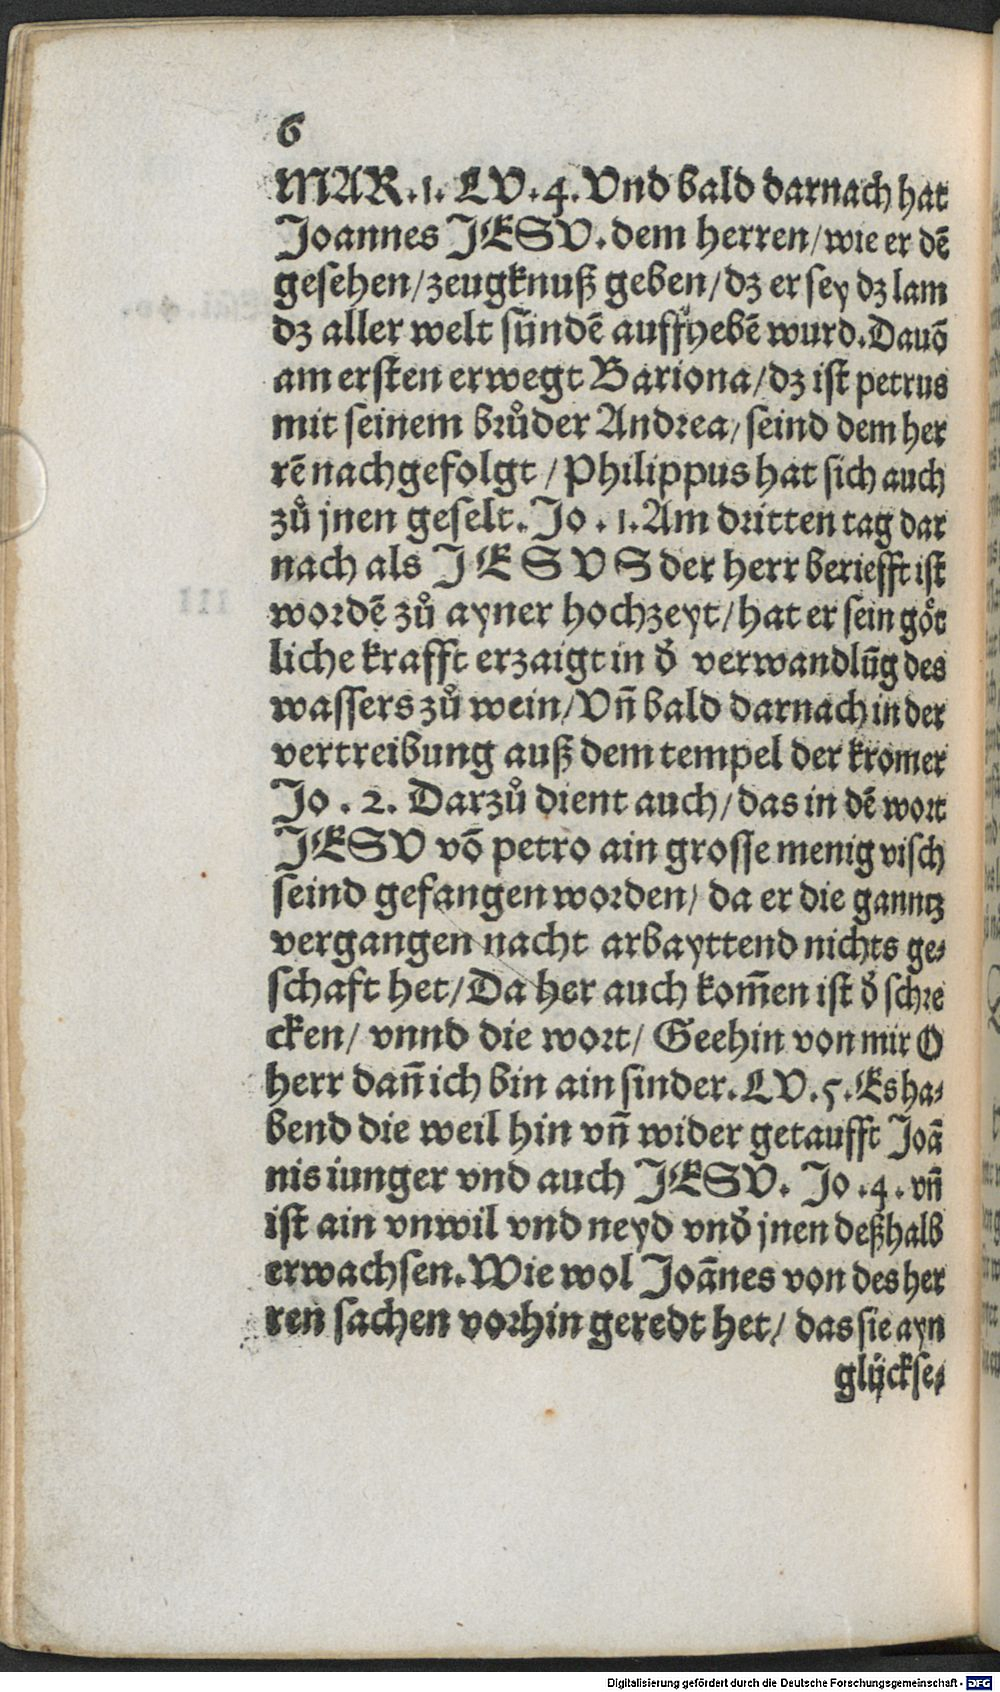 6
MAR.1. LV.4. Vnd bald darnach hat
Joannes JESV. dem herren/ wie er dē
gesehen/ zeugknuß geben/ dz er sey dz lam
dz aller welt sündē auffhebē wurd. Dauō
am ersten erwegt Bariona/ dz ist petrus
mit seinem brůder Andrea/ seind dem her
rē nachgefolgt / Philippus hat sich auch
zů jnen geselt. Jo . 1. Am dritten tag dar
nach als JESVS der herr beriefft ist
wordē zů ayner hochzeyt/ hat er sein göt
liche krafft erzaigt in d̄ verwandlūg des
wassers zů wein/ Vn̄ bald darnach in der
vertreibung auß dem tempel der kromer
Jo . 2. Darzů dient auch/ das in dē wort
JESV vō petro ain grosse menig visch
seind gefangen worden/ da er die ganntz
vergangen nacht arbayttend nichts ge⸗
schaft het/ Da her auch kom̄en ist d̄ schre
cken/ vnnd die wort/ Geehin von mir O
herr dan̄ ich bin ain sinder. LV.5. Es ha⸗
bend die weil hin vn̄ wider getaufft Joā
nis iunger vnd auch JESV. Jo .4. vn̄
ist ain vnwil vnd neyd vnd̄ jnen deßhalb
erwachsen. Wie wol Joānes von des her
ren sachen vorhin geredt het/ das sie ayn
glückse⸗
Digitalisierung gefördert durch die Deutsche Forschungsgemeinschaft - DFG